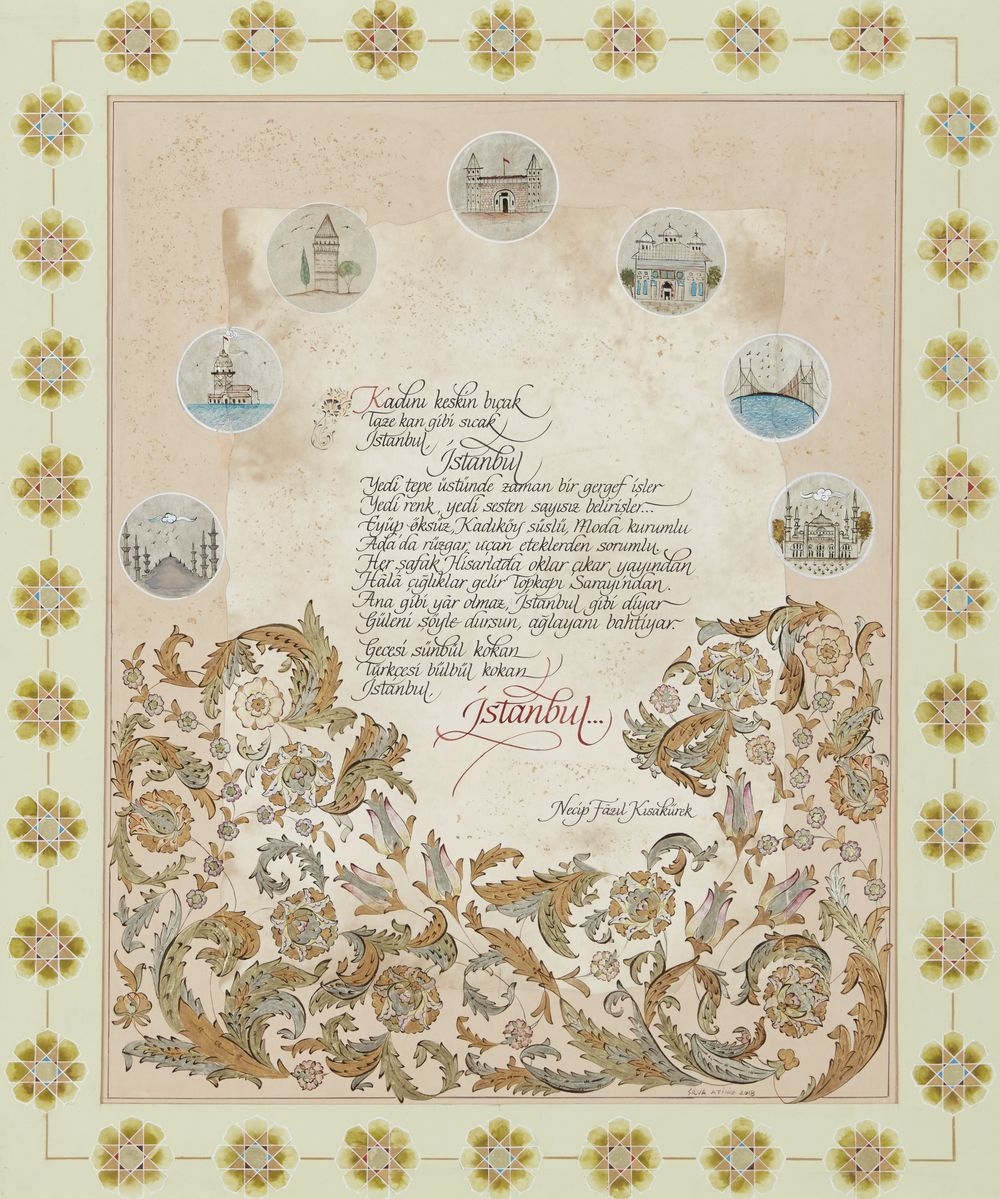 Kadını keskin bıçak
Taze kan gibi sıcak
İstanbul,
İstanbul
Yedi tepe üstünde zaman bir gergef işler
Yedi renk, yedi sesten sayısız belirişler...
Eyüp öksüz, Kadıköy süslü, Moda kurumlu
Ada'da rüzgar, uçan eteklerden sorumlu.
Her şafak Hisarlarda oklar çıkar yayından
Hâlâ çığlıklar gelir Topkapı Sarayı'ndan.
Ana gibi yâr olmaz, İstanbul gibi diyar
Güleni şöyle dursun, ağlayanı bahtiyar.
Gecesi sünbül kokan
Türkçesi bülbül kokan
İstanbul,
İstanbul...
Necip Fâzıl Kısakürek
SİLVA 2018